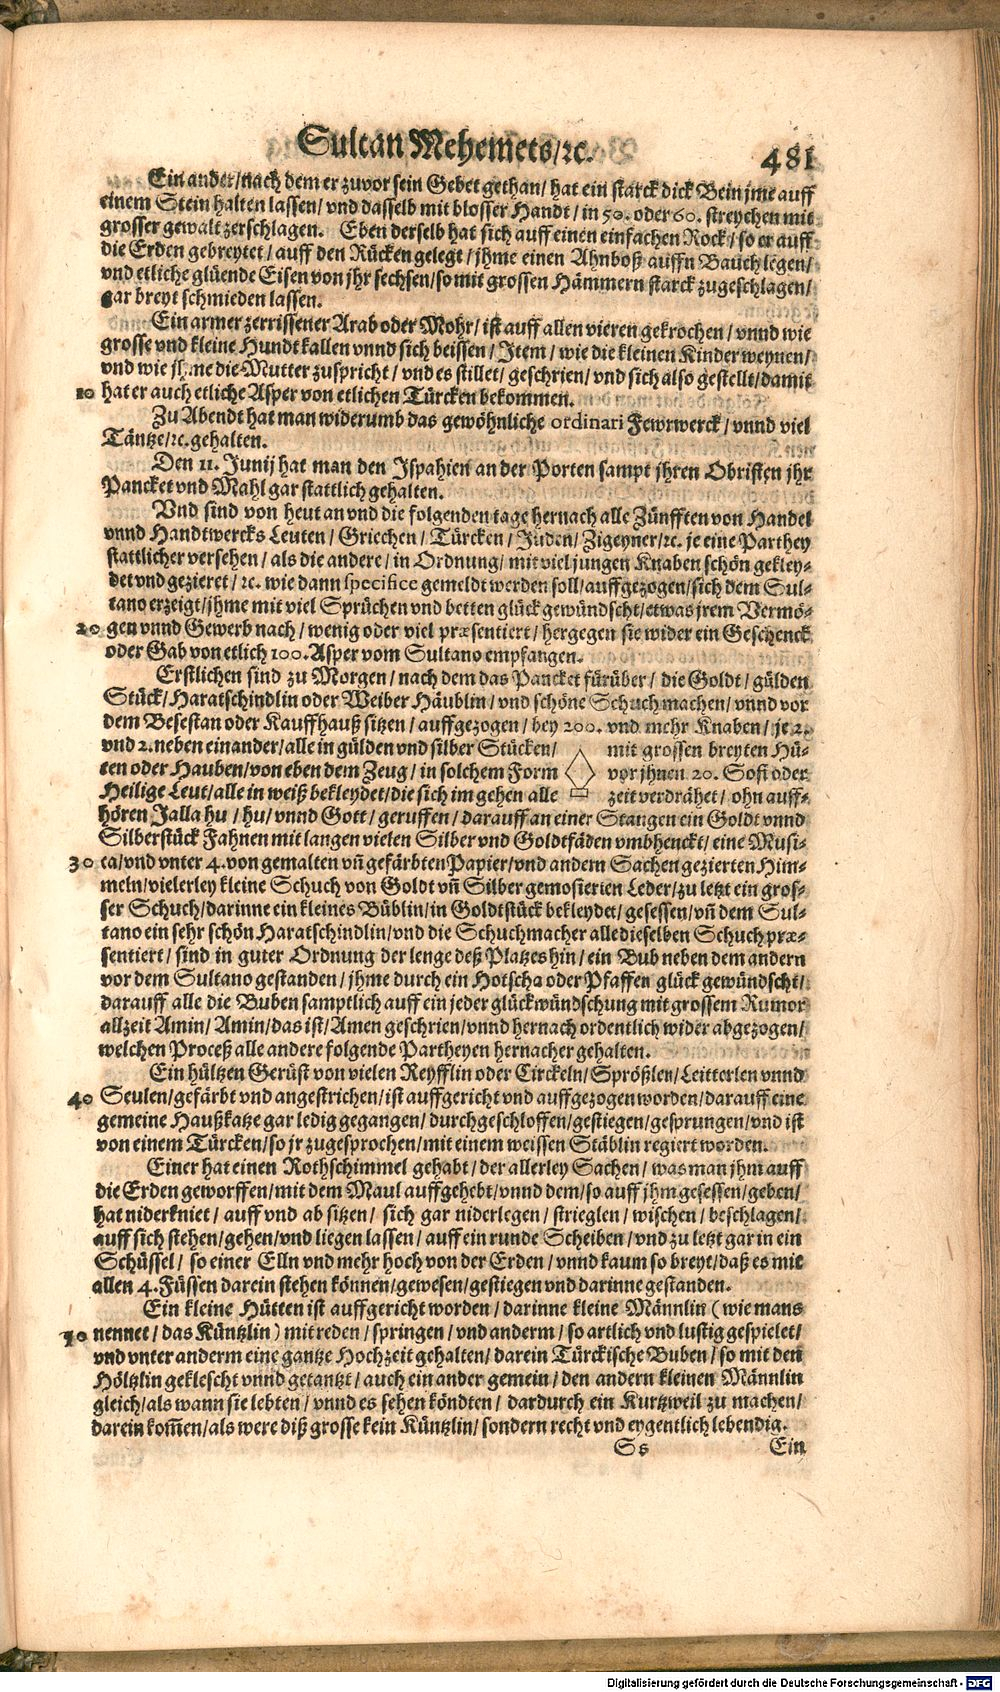 Sultan Mehemets/ꝛc. 481
Ein ander/nach dem er zuvor sein Gebet gethan/ hat ein starck dick Bein jme auff
einem Stein halten lassen/ vnd dasselb mit blosser Handt/ in 50. oder 60. streychen mit
grosser gewalt zerschlagen. Eben derselb hat sich auff einen einfachen Rock/ so er auff
die Erden gebreytet/ auff den Rücken gelegt/ jhme einen Ahnboß auffn Bauch legen/
vnd etliche glüende Eisen von jhr sechsen/so mit grossen Hämmern starck zugeschlagen/
gar breyt schmieden lassen.
Ein armer zerrissener Arab oder Mohr/ ist auff allen vieren gekrochen/ vnnd wie
grosse vnd kleine Hundt kallen vnnd sich beissen/ Item/ wie die kleinen Kinder weynen/
vnd wie jhme die Mutter zuspricht/ vnd es stillet/ geschrien/ vnd sich also gestellt/damit
10 hat er auch etliche Asper von etlichen Türcken bekommen.
Zu Abendt hat man widerumb das gewöhnliche ordinari Fewrwerck/ vnnd viel
Täntze/ꝛc. gehalten.
Den 11. Junij hat man den Ispahien an der Porten sampt jhren Obristen jhr
Pancket vnd Mahl gar stattlich gehalten.
Vnd sind von heut an vnd die folgenden tage hernach alle Zünfften von Handel
vnnd Handtwercks Leuten/ Griechen/ Türcken/ Juden/ Zigeyner/ꝛc. je eine Parthey
stattlicher versehen/ als die andere/ in Ordnung/ mit viel jungen Knaben schön gekley-
det vnd gezieret/ ꝛc. wie dann specifice gemeldt werden soll/auffgezogen/sich dem Sul-
tano erzeigt/jhme mit viel Sprüchen vnd betten glück gewündscht/etwas jrem Vermö-
20 gen vnnd Gewerb nach/ wenig oder viel præsentiert/ hergegen sie wider ein Geschenck
oder Gab von etlich 100. Asper vom Sultano empfangen.
Erstlichen sind zu Morgen/ nach dem das Pancket fürüber/ die Goldt/ gülden
Stück/Haratschindlin oder Weiber Häublin/ vnd schöne Schuch machen/ vnnd vor
dem Besestan oder Kauffhauß sitzen/ auffgezogen/ bey 200. vnd mehr Knaben/ je 2.
vnd 2. neben einander/alle in gülden vnd silber Stücken/ mit grossen breyten Hü-
ten oder Hauben/von eben dem Zeug/ in solchem Form vor jhnen 20. Sofi oder
Heilige Leut/alle in weiß bekleydet/die sich im gehen alle zeit verdrähet/ ohn auff-
hören Jalla hu/ hu/ vnnd Gott/ geruffen/ darauff an einer Stangen ein Goldt vnnd
Silberstück Fahnen mit langen vielen Silber vnd Goldtfäden vmbhenckt/ eine Musi-
30 ca/vnd vnter 4. von gemalten vñ gefärbten Papier/vnd andern Sachen gezierten Him-
meln/vielerley kleine Schuch von Goldt vñ Silber gemosierten Leder/zu letzt ein gros-
ser Schuch/darinne ein kleines Büblin/in Goldtstück bekleydet/ gesessen/vñ dem Sul-
tano ein sehr schön Haratschindlin/vnd die Schuchmacher alle dieselben Schuch præ-
sentiert/ sind in guter Ordnung der lenge deß Platzes hin/ ein Bub neben dem andern
vor dem Sultano gestanden/ jhme durch ein Hotscha oder Pfaffen glück gewündscht/
darauff alle die Buben samptlich auff ein jeder glückwündschung mit grossem Rumor
allzeit Amin/ Amin/das ist/Amen geschrien/vnnd hernach ordentlich wider abgezogen/
welchen Proceß alle andere folgende Partheyen hernacher gehalten.
Ein hültzen Gerüst von vielen Reyfflin oder Circkeln/Sprößlen/Leitterlen vnnd
40 Seulen/gefärbt vnd angestrichen/ist auffgericht vnd auffgezogen worden/darauff eine
gemeine Haußkatze gar ledig gegangen/ durchgeschloffen/gestiegen/gesprungen/vnd ist
von einem Türcken/so jr zugesprochen/mit einem weissen Stäblin regiert worden.
Einer hat einen Rothschimmel gehabt/ der allerley Sachen/ was man jhm auff
die Erden geworffen/mit dem Maul auffgehebt/vnnd dem/so auff jhm gesessen/geben/
hat niderkniet/ auff vnd ab sitzen/ sich gar niderlegen/ strieglen/ wischen/ beschlagen/
auff sich stehen/gehen/vnd liegen lassen/ auff ein runde Scheiben/ vnd zu letzt gar in ein
Schüssel/ so einer Elln vnd mehr hoch von der Erden/ vnnd kaum so breyt/daß es mit
allen 4. Füssen darein stehen können/gewesen/gestiegen vnd darinne gestanden.
Ein kleine Hütten ist auffgericht worden/ darinne kleine Männlin (wie mans
50 nennet/ das Küntzlin) mit reden/springen/ vnd anderm/ so artlich vnd lustig gespielet/
vnd vnter anderm eine gantze Hochzeit gehalten/ darein Türckische Buben/ so mit den
Höltzlin geklescht vnnd getantzt/ auch ein ander gemein/ den andern kleinen Männlin
gleich/als wann sie lebten/ vnnd es sehen köndten/ dardurch ein Kurtzweil zu machen/
darein kom̃en/als were diß grosse kein Küntzlin/ sondern recht vnd eygentlich lebendig.
Ss Ein
Digitalisierung gefördert durch die Deutsche Forschungsgemeinschaft - DFG